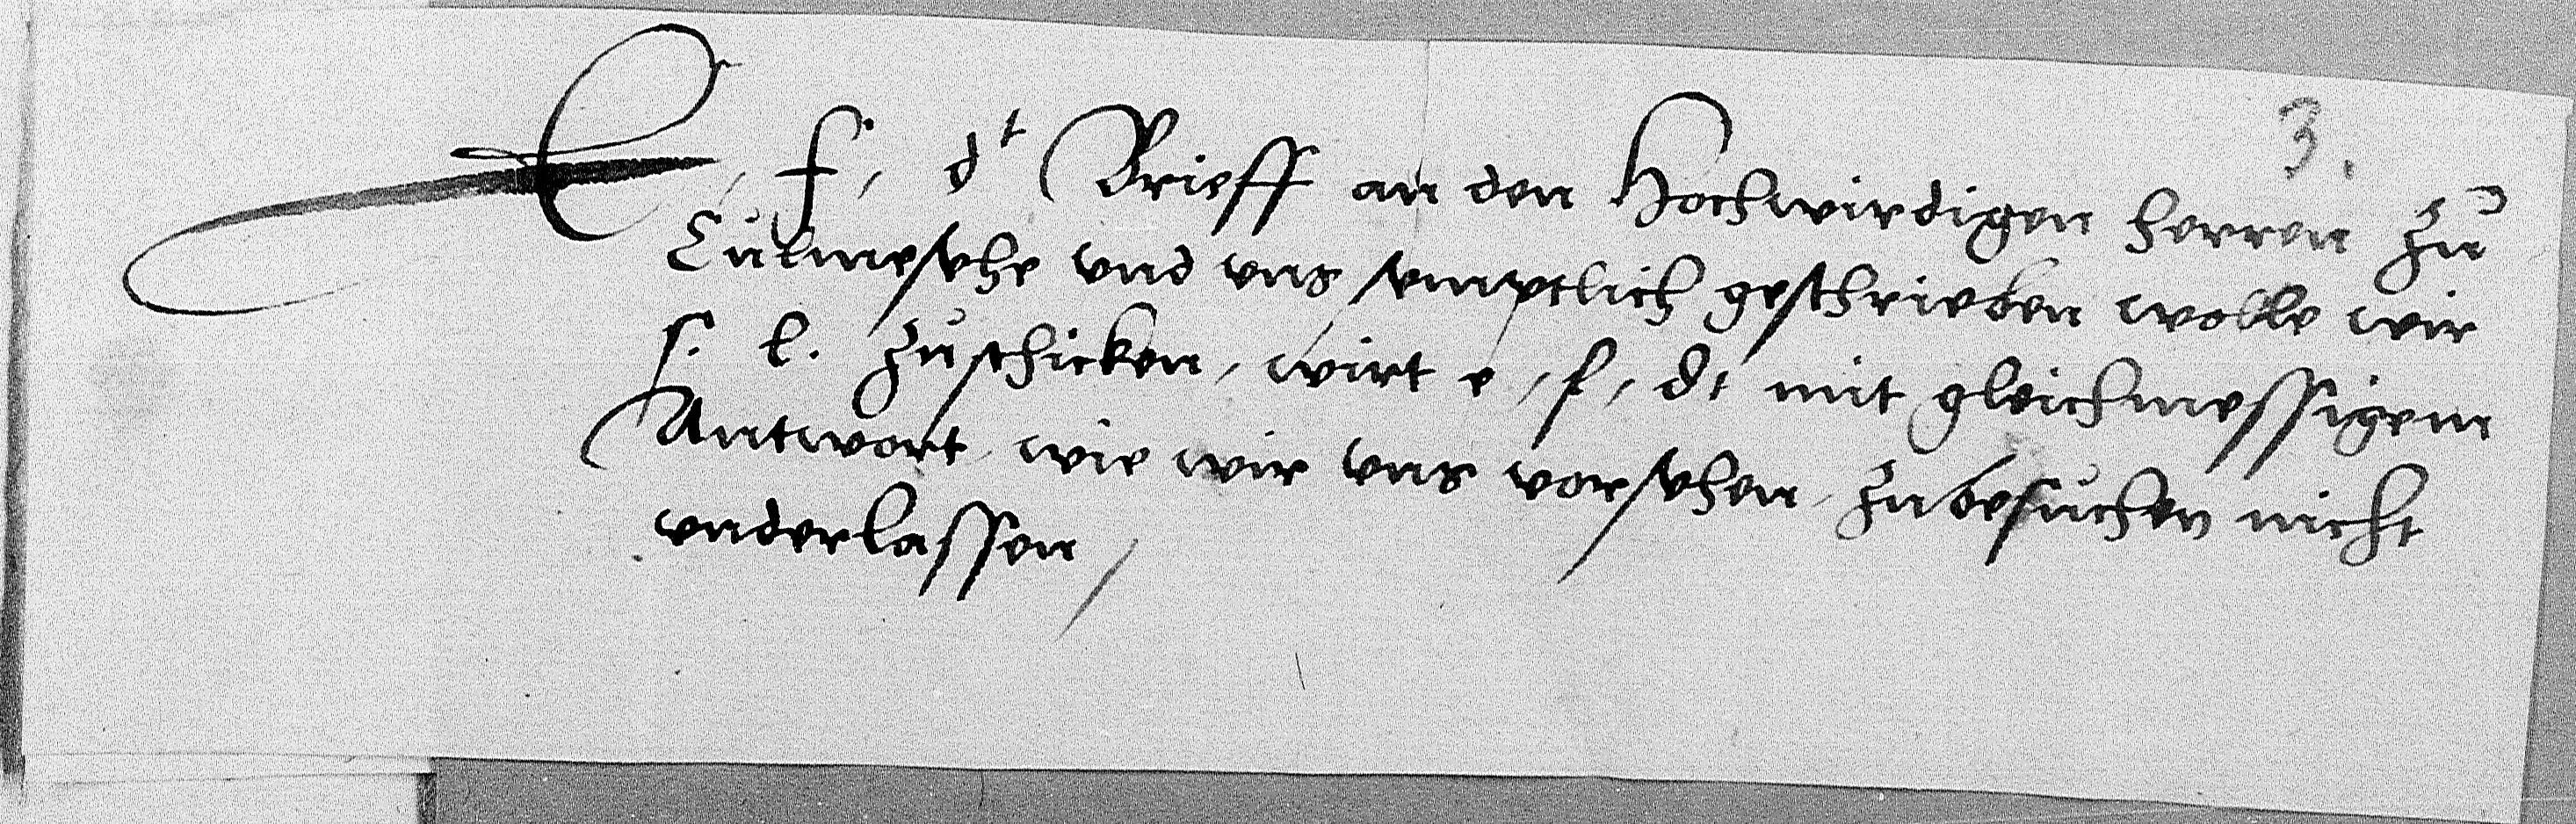 3.
E, f, dt Brieff an den Hochwirdigen herren zu
Culmensehe vnd vns semptlich geschrieben wolle wir
s. l. zuschicken, wirt e, f, dt mit gleichmessigem
Antwort, wie wir vns vorsehen, zubesuchen nicht
vnderlassen /